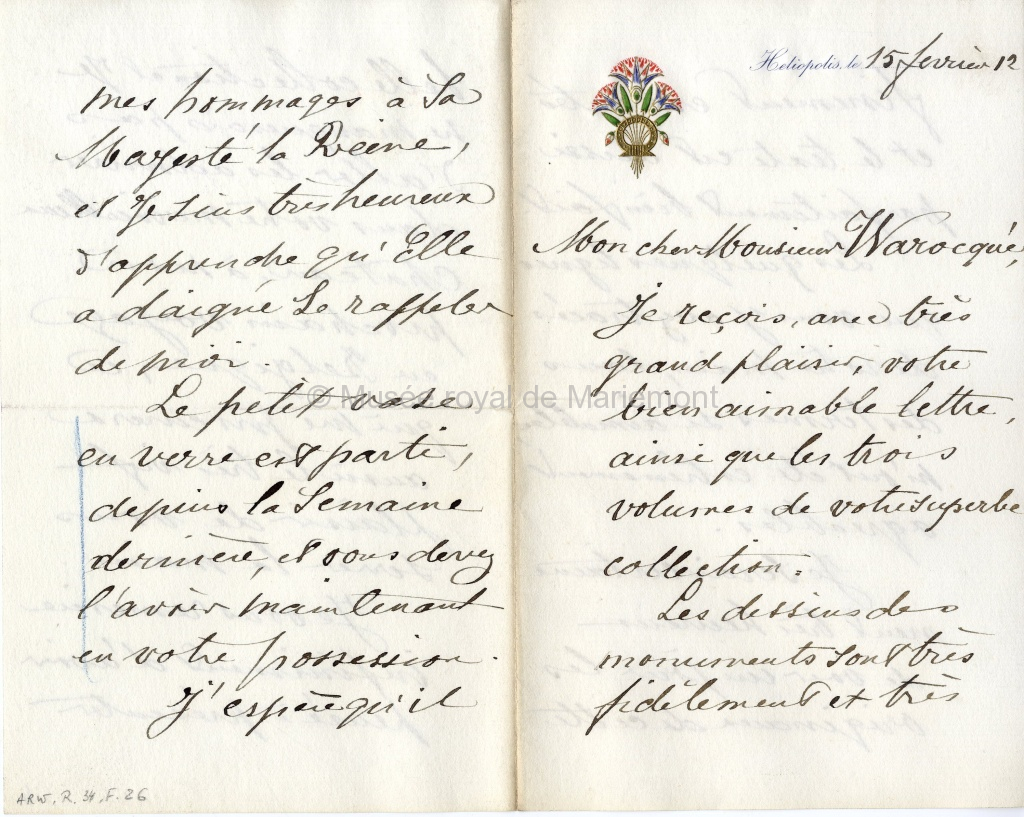 Heliopolis, le 15 février 12
Mon cher Monsieur Warocqué,
Je reçois, avec très
grand plaisir, votre
bien aimable lettre,
ainsi que les trois
volumes de votre superbe
collection.
Les dessins des
monuments sont très
fidèlement et très
mes hommages à Sa
Majesté la Reine,
et Je suis très heureux
d'apprendre qu'Elle
a daigné Se rappeler
de moi.
Le petit vase
en verre est parti,
depuis la Semaine
dernière, et vous devez
l'avoir maintenant
en votre possession.
J'espère qu'il
© Musée royal de Mariemont
ARW, R. 34, F. 26